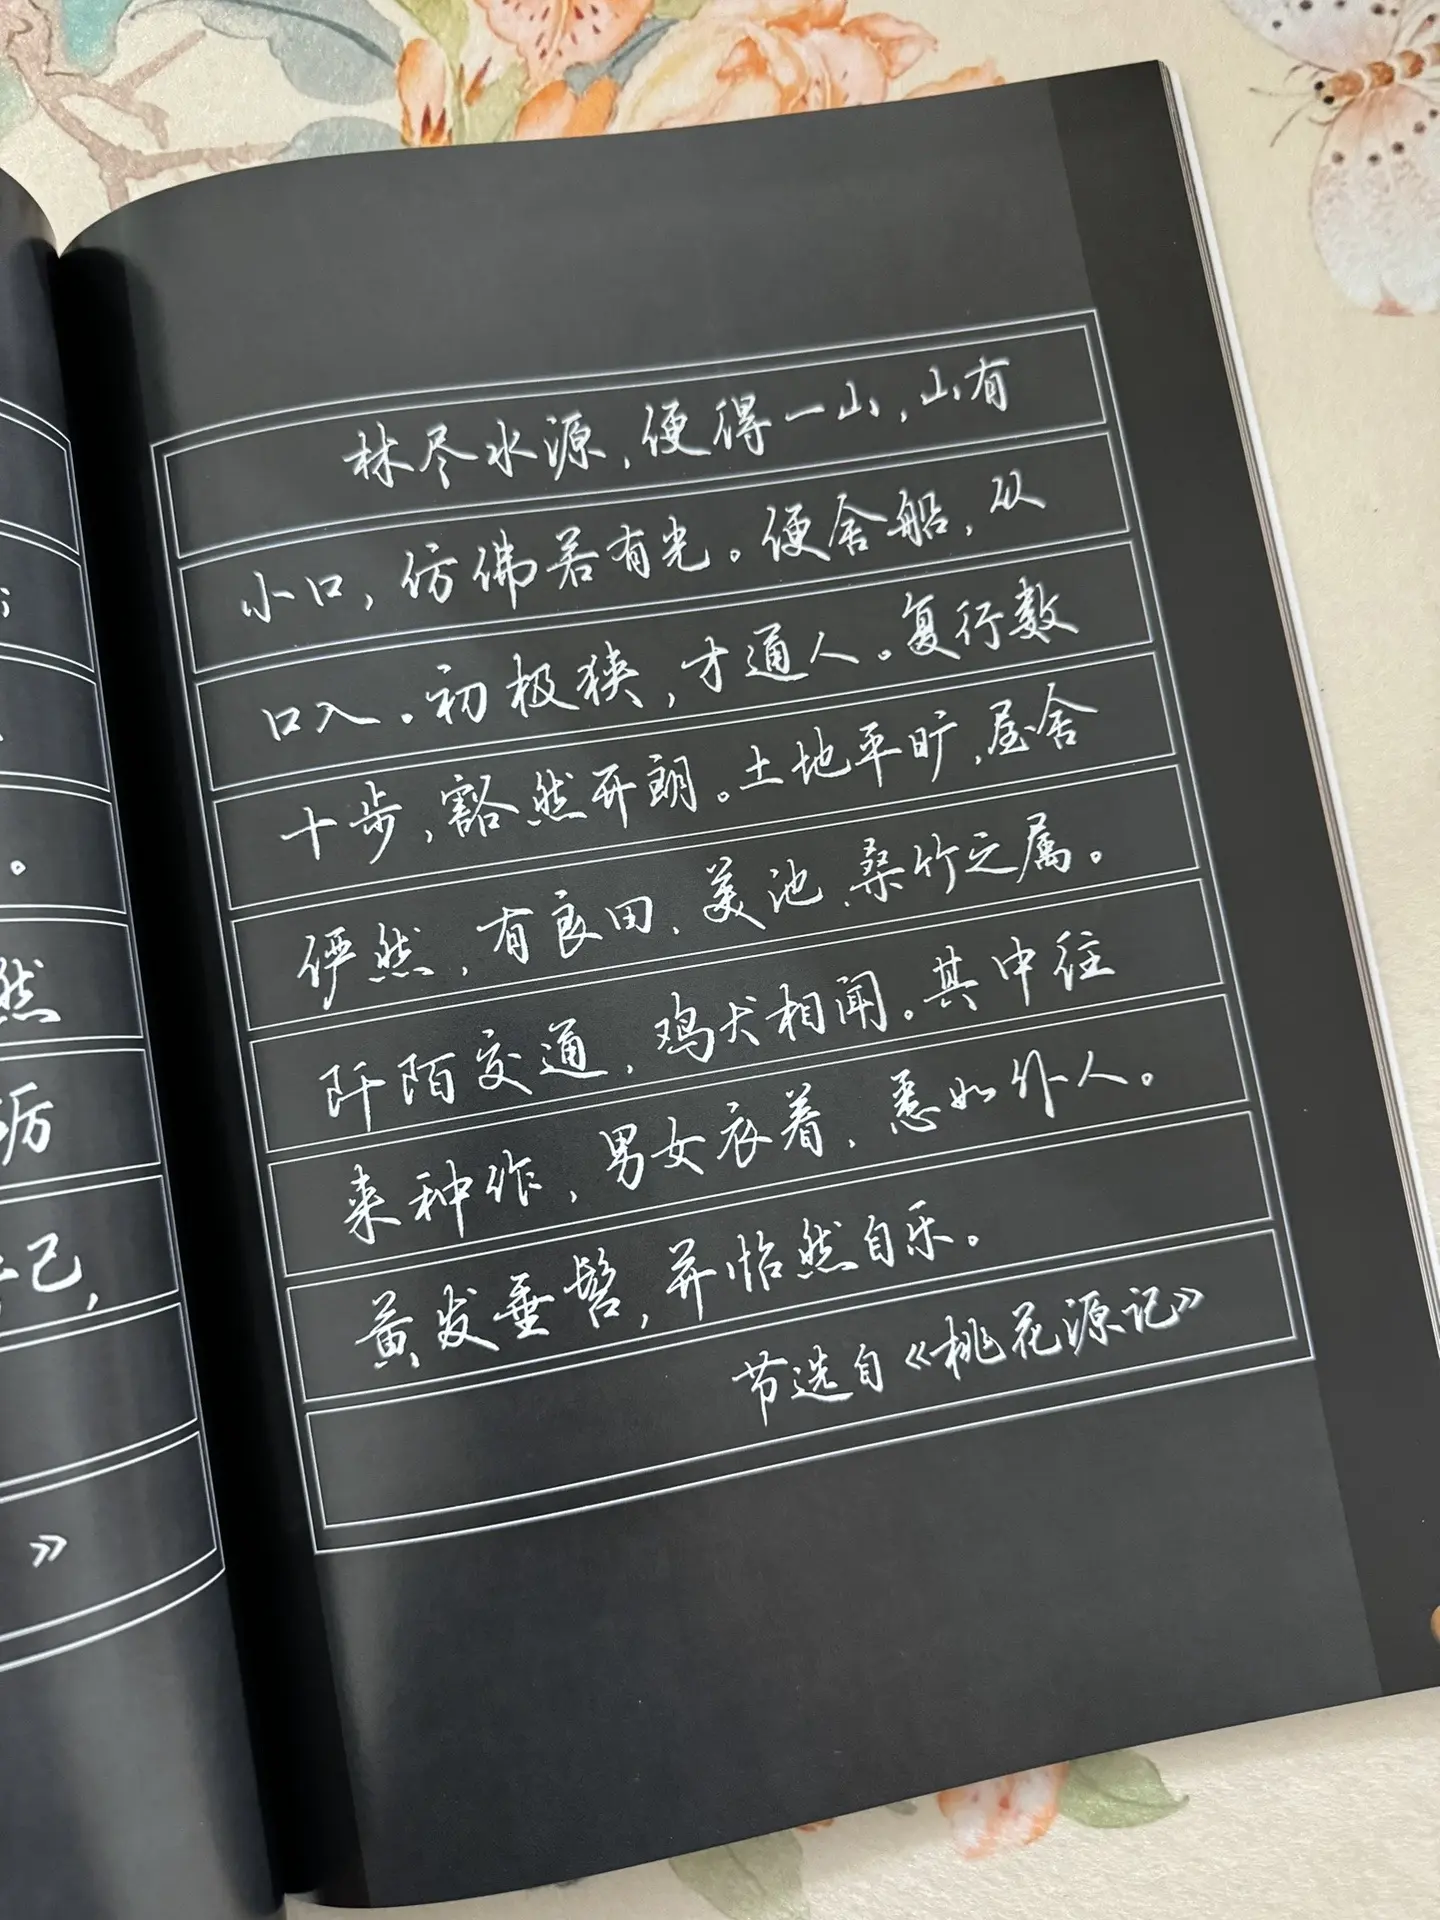 然
厉
己，
》
林尽水源，便得一山，山有
小口，仿佛若有光。便舍船，从
口入。初极狭，才通人。复行数
十步，豁然开朗。土地平旷，屋舍
俨然，有良田、美池、桑竹之属。
阡陌交通，鸡犬相闻。其中往
来种作，男女衣着，悉如外人。
黄发垂髫，并怡然自乐。
节选自《桃花源记》